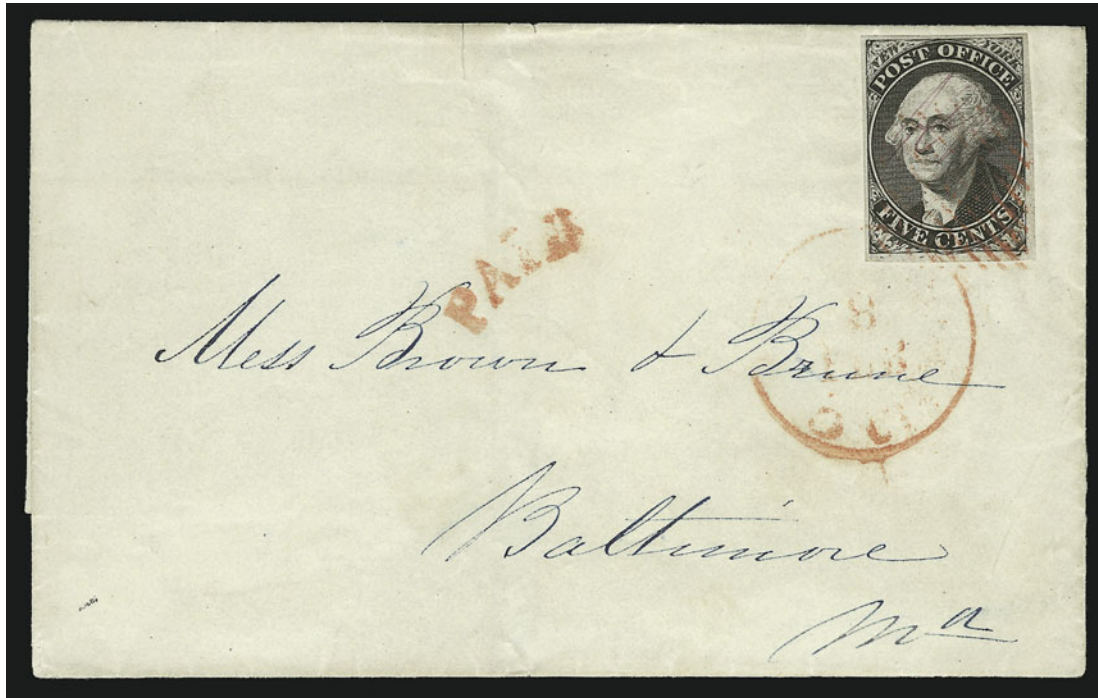 NEW YORK
POST OFFICE
FIVE CENTS
PAID
8
5 cts
Mess Brown & Brune
Baltimore
Md